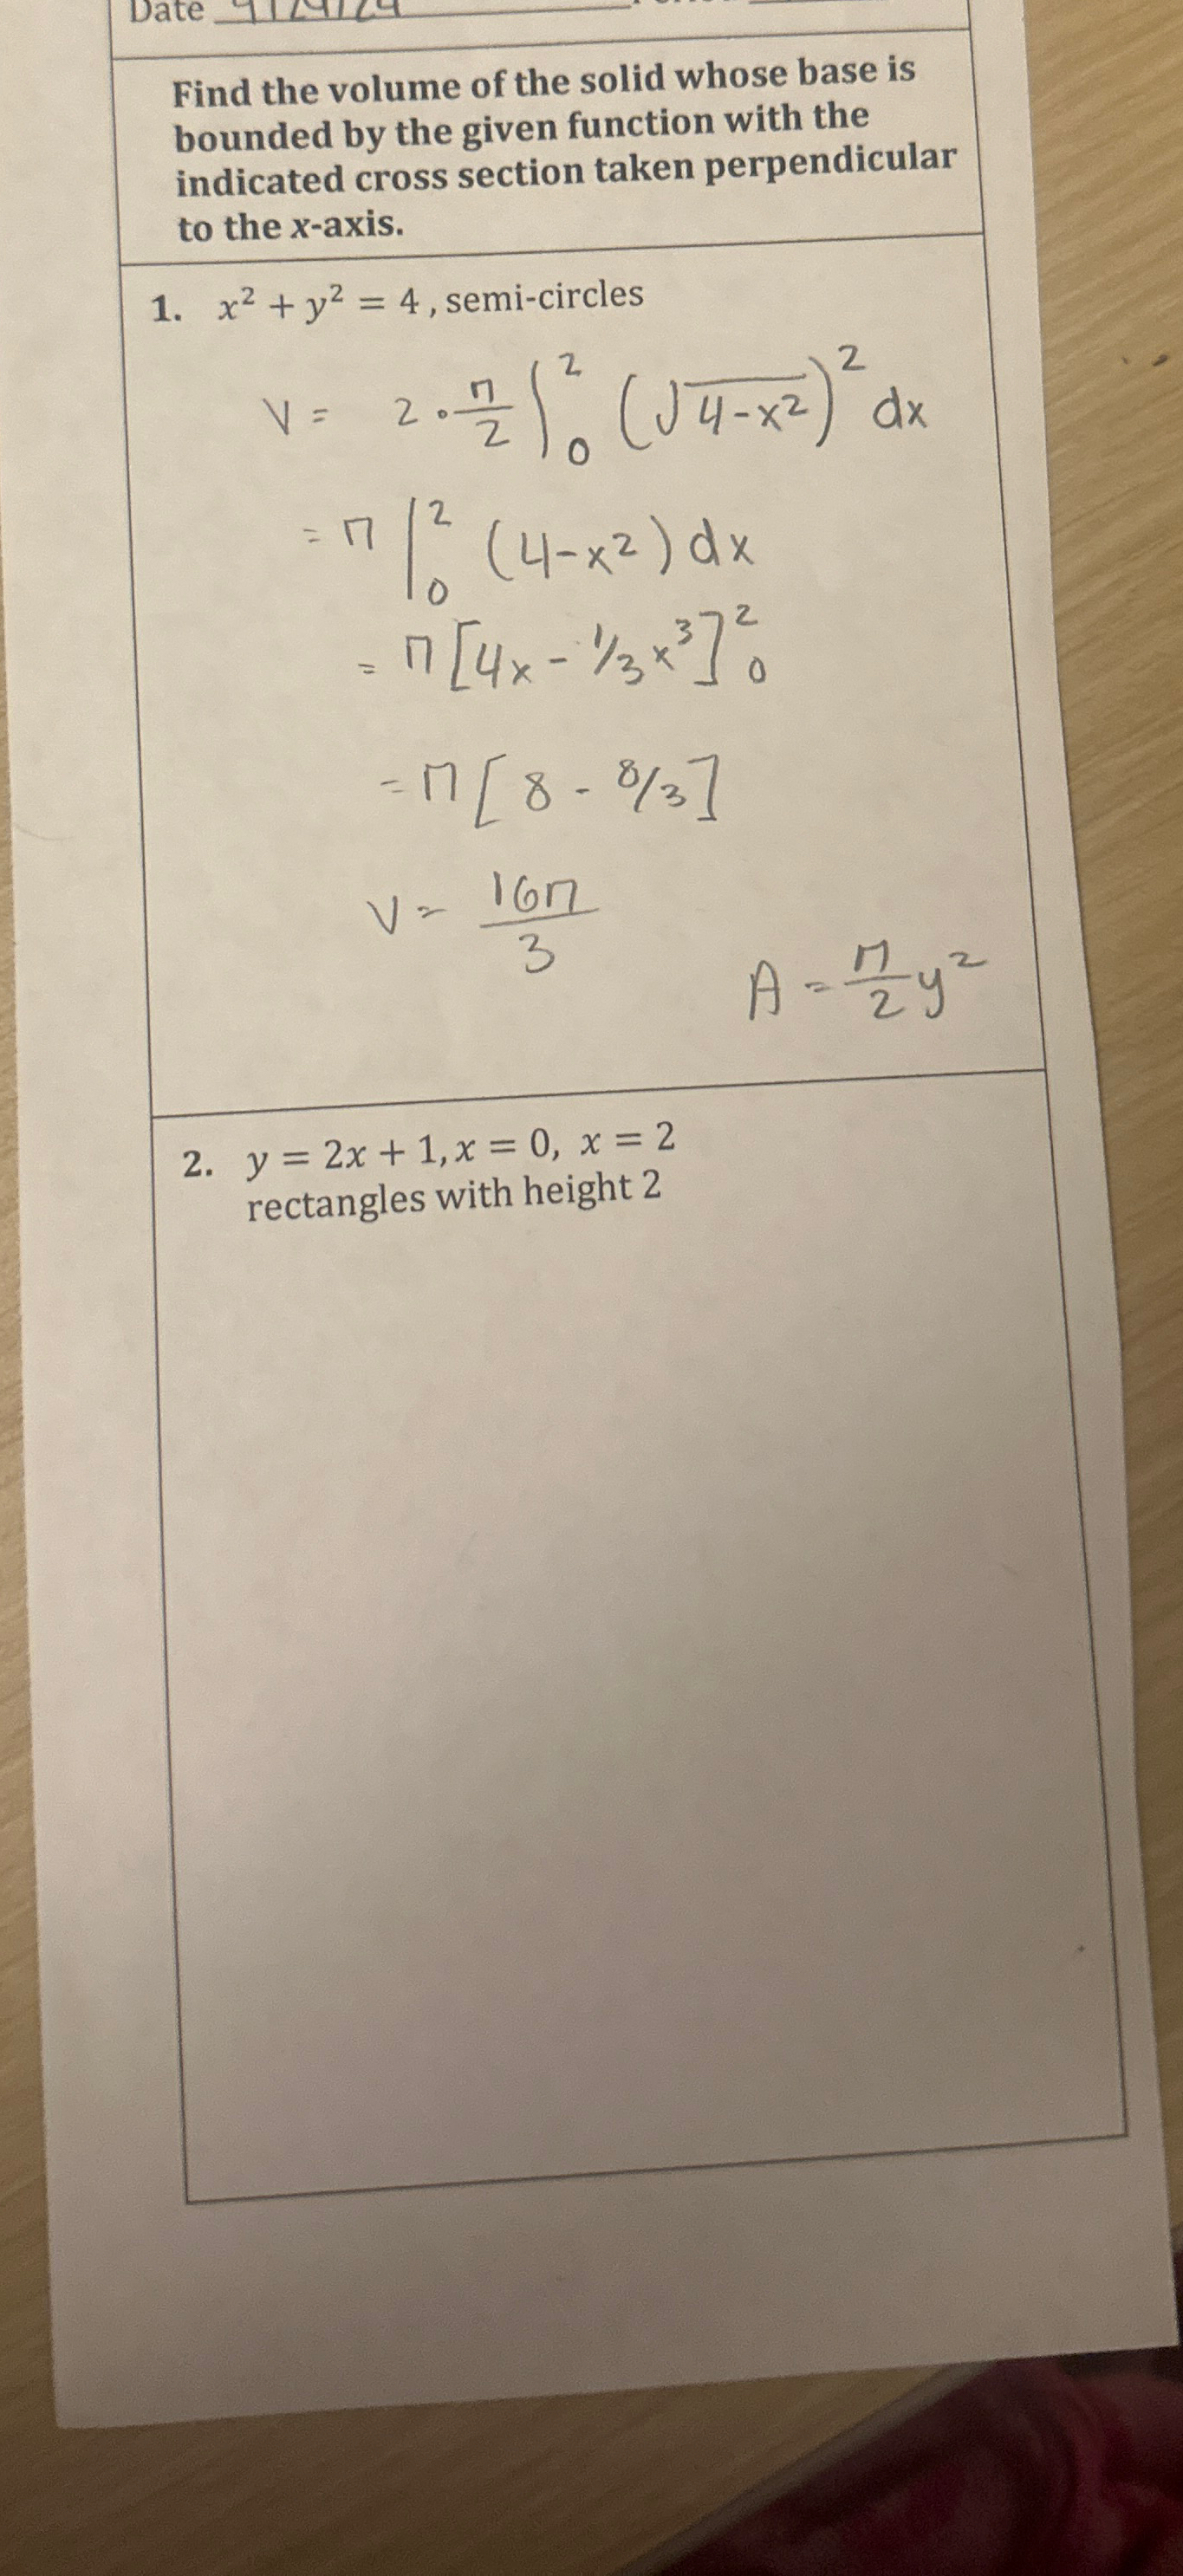 Date 9/24/24
Find the volume of the solid whose base is
bounded by the given function with the
indicated cross section taken perpendicular
to the x-axis.
1. x² + y² = 4 , semi-circles
V = 2 · π/2 ∫₀² (√(4-x²))² dx
= π ∫₀² (4-x²) dx
= π [4x - 1/3 x³]₀²
= π [8 - 8/3]
V = 16π/3
A = π/2 y²
2. y = 2x + 1, x = 0, x = 2
rectangles with height 2